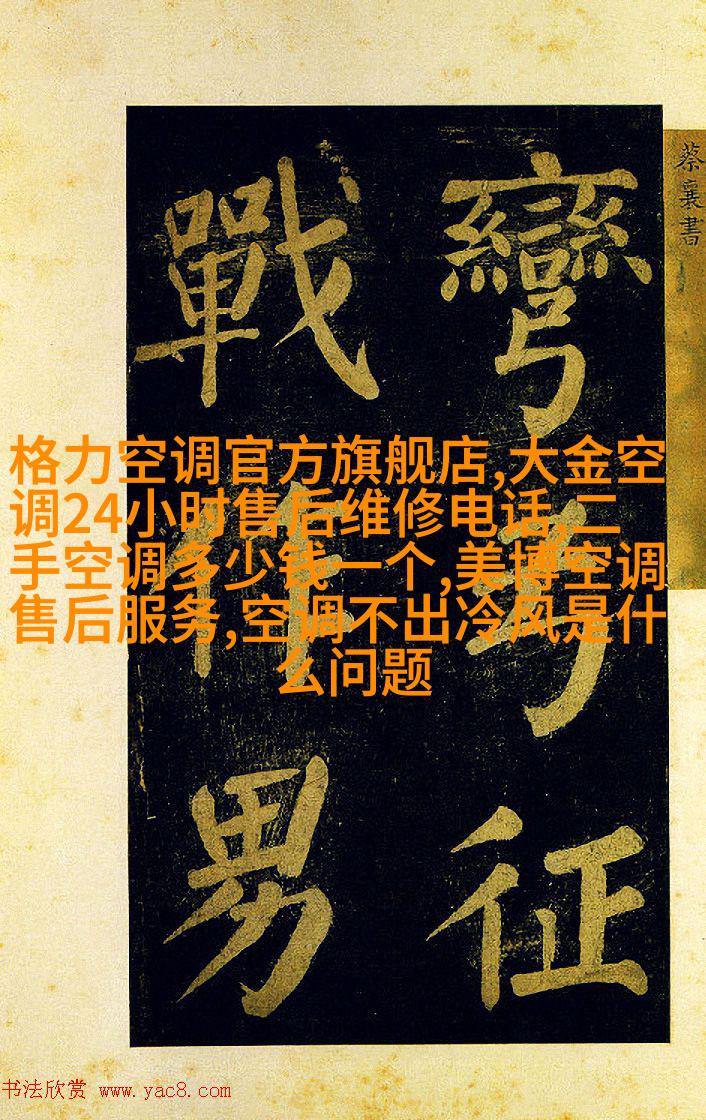 蔡襄書
彎弓征
戰作男
格力空调官方旗舰店,大金空
调24小时售后维修电话,二
手空调多少钱一个,美博空调
售后服务,空调不出冷风是什
么问题
书法欣赏 www.yac8.com